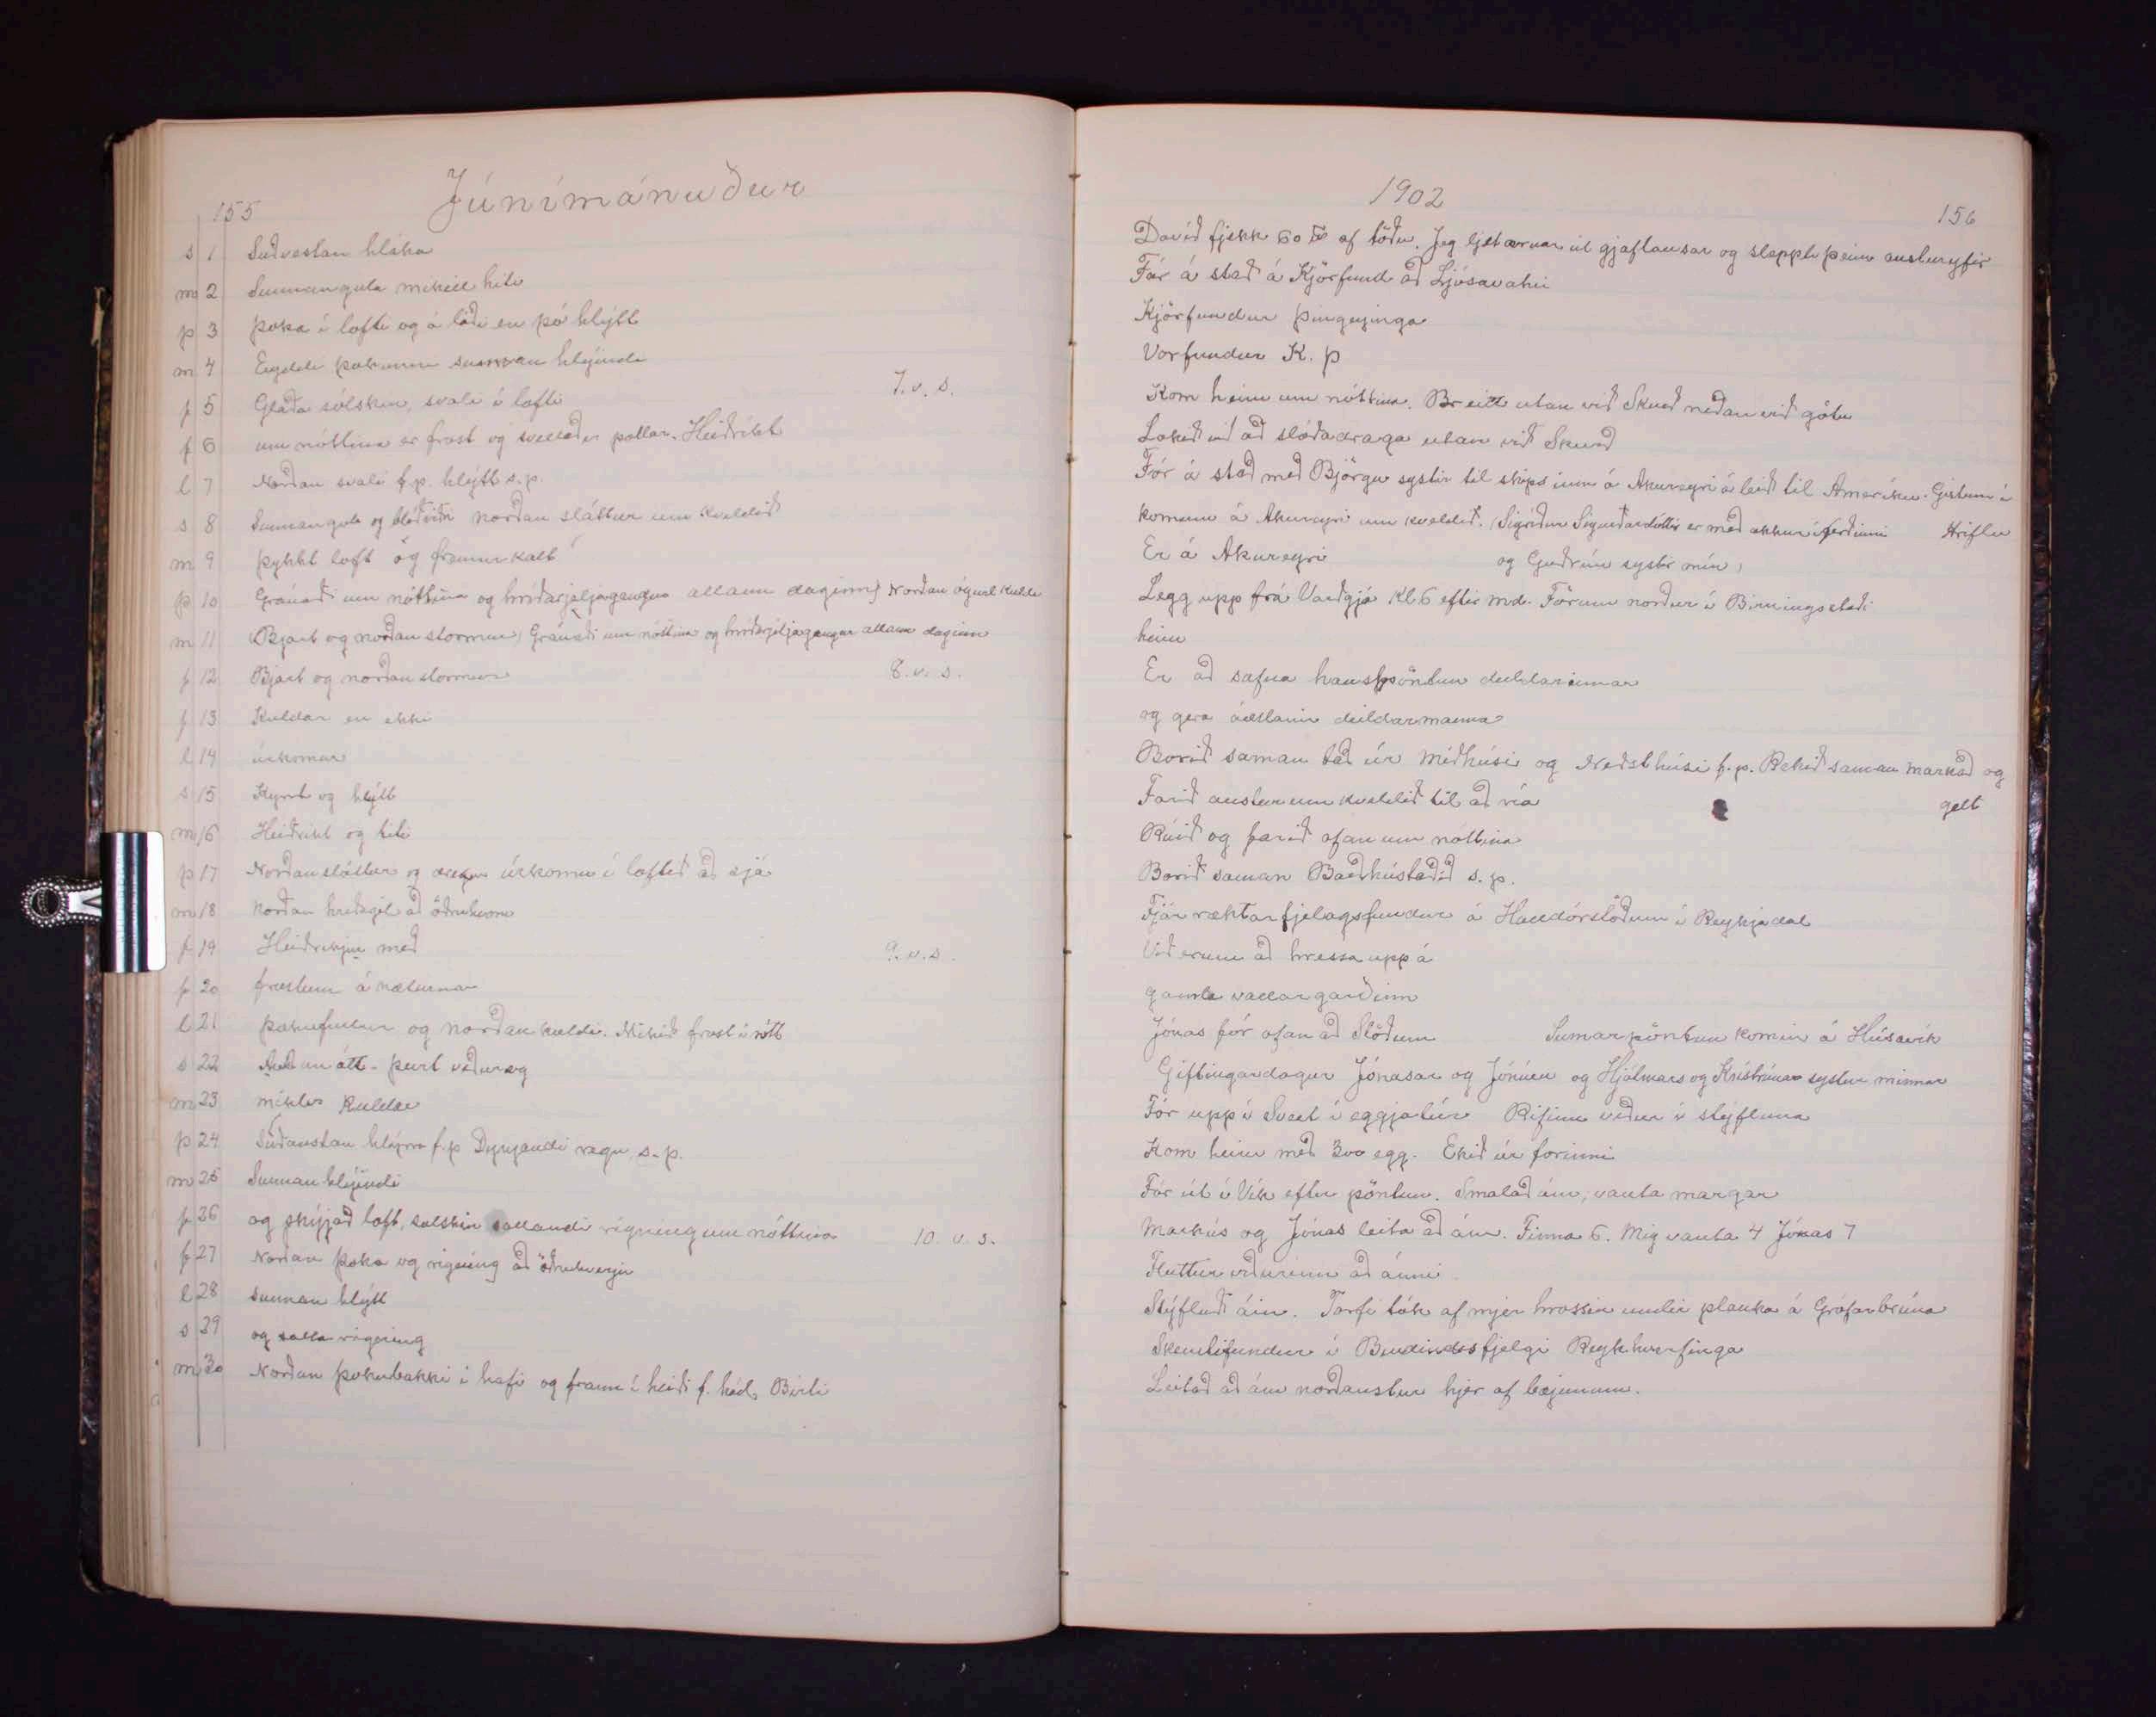 155
Júnímánuður
s 1 Suðvestan hláka
m 2 Sunnangola mikill hiti
þ 3 þoka í lofti og á láði en þó hlýtt
m 4 Eyddi þokunni sunnan hlýindi
f 5 Glaða sólskin, svali í lofti 7. v. s.
f 6 um nóttina er frost og svellaðir pollar. Heiðríkt
l 7 Norðan svali f.p. hlýtt s.p.
s 8 Sunnangola og norðan sláttur um kveldið
m 9 þykkt loft og fremur kalt
þ 10 Gránaði um nóttina og hríðarjeljagangur allann daginn) Norðan ógurl kuldi
m 11 (Bjart og norðan stormur) Gránaði um nóttina og hríðarjeljagangur allann daginn
f 12 Bjart og norðan stormur 8. v. s.
f 13 Kuldar en ekki
l 14 úrkomar
s 15 Kyrt og hlýtt
m 16 Heiðríkt og hiti
þ 17 Norðansláttur og úrkoma í loftið að sjá
m 18 Norðan hreðagil að öðruhvoru
f 19 Heiðríkjur með 9. v. s.
f 20 frostum á næturnar
l 21 þokufullur og norðankuldi. Mikið frost í nótt
s 22 Norðan átt - þurt veður og
m 23 miklir kuldar
þ 24 Suðaustan hlýrra f.p Dynjandi regn s.p.
m 25 Sunnan hlýindi
f 26 og skýjað loft, sólskin rigning um nóttina 10. v. s.
f 27 Norðan þoka og rigning að öðruhverju
l 28 sunnan hlýtt
s 29 og rigning
m 30 Norðan þokubakki í hafi og fram í heiði f. hád. Birti
1902
156
Davíð fjekk 60 af töðu. Jeg ljet ærnar út gjaflausar og sleppti þeim austuryfir
Fór á stað á Kjörfund að Ljósavatni
Kjörfundur þingeyinga
Vorfundur K. þ
Kom heim um nóttina. Breitt utan við Skurð neðan við götu
Lokið við að slóðadraga utan við Skurð
Fór á stað með Björgu systir til skips inn á Akureyri á leið til Ameríku. Gistum í
Hriflu
komum á Akureyri um kveldið. (Sigríður Sigurðardóttir er með okkur í ferðinni
Er á Akureyri og Guðrún systir mín)
Legg upp frá Vaðgjá Kl 6 eftir md. Förum norður í Birningsstaði
heim
Er að safna haustpöntun deildarinnar
og gera áætlanir deildarmanna
Borið saman tað úr Miðhúsi og Neðsthúsi f.p. Rekið saman markað og
gelt
Farið austur um kveldið til að ría
Rúið og farið ofan um nóttina
Borið saman Baðhústaðið s.p.
Fjárræktarfjelagsfundur á Halldórstöðum í Reykjadal
Við erum að hressa upp á
gamla vallargarðinn
Jónas fór ofan að Slöðum Sumarpöntun komin á Húsavík
Giftingardagur Jónasar og Jónínu og Hjálmars og Kristrúnar systur minnar
Fór upp í Sveit í eggjatúr Rifinn viður í stýfluna
Kom heim með 300 egg. Ekið úr forinni
Fór út í Vík eftir pöntun. Smalað ám, vanta margar
Markús og Jónas leita að ám. Finna 6. Mig vanta 4 Jónas 7
Fluttur viðurinn að ánni
Stýfluð áin. Torfi tók af mjer hrossin undir planka á Grafarbrúna
Skemtifundur í Bindindisfjelgi Reykhverfinga
Leitað að ám norðaustur hjer af bæjunum.